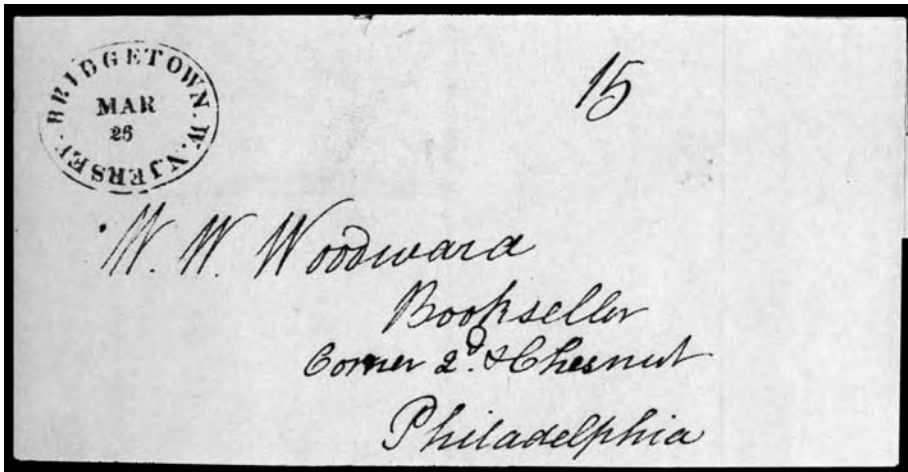 BRIDGETOWN. W. N. JERSEY.
MAR
26
15
W. W. Woodward
Bookseller
Corner 2d. & Chesnut
Philadelphia